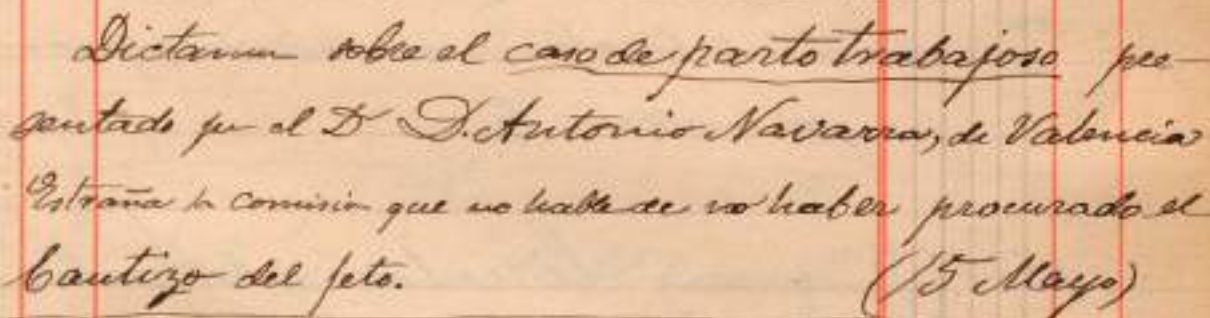 Dictamen sobre el caso de parto trabajoso pre-
sentado por el Dr D. Antonio Navarra, de Valencia
Estraña la comision que no hable de no haber procurado el
bautizo del feto. (15 Mayo)